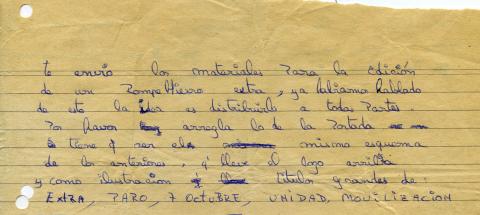 te envio los materiales para la edición
de un Rompe Hielo extra, ya habíamos hablado
de esto la idea es distribuirlo a todas partes.
Por favor arregla lo de la Portada
tiene q' ser el mismo esquema
de los anteriores, q' lleve el logo arriba
y como ilustracion titulos grandes de:
EXTRA, PARO, 7 OCTUBRE, UNIDAD, MOVILIZACION